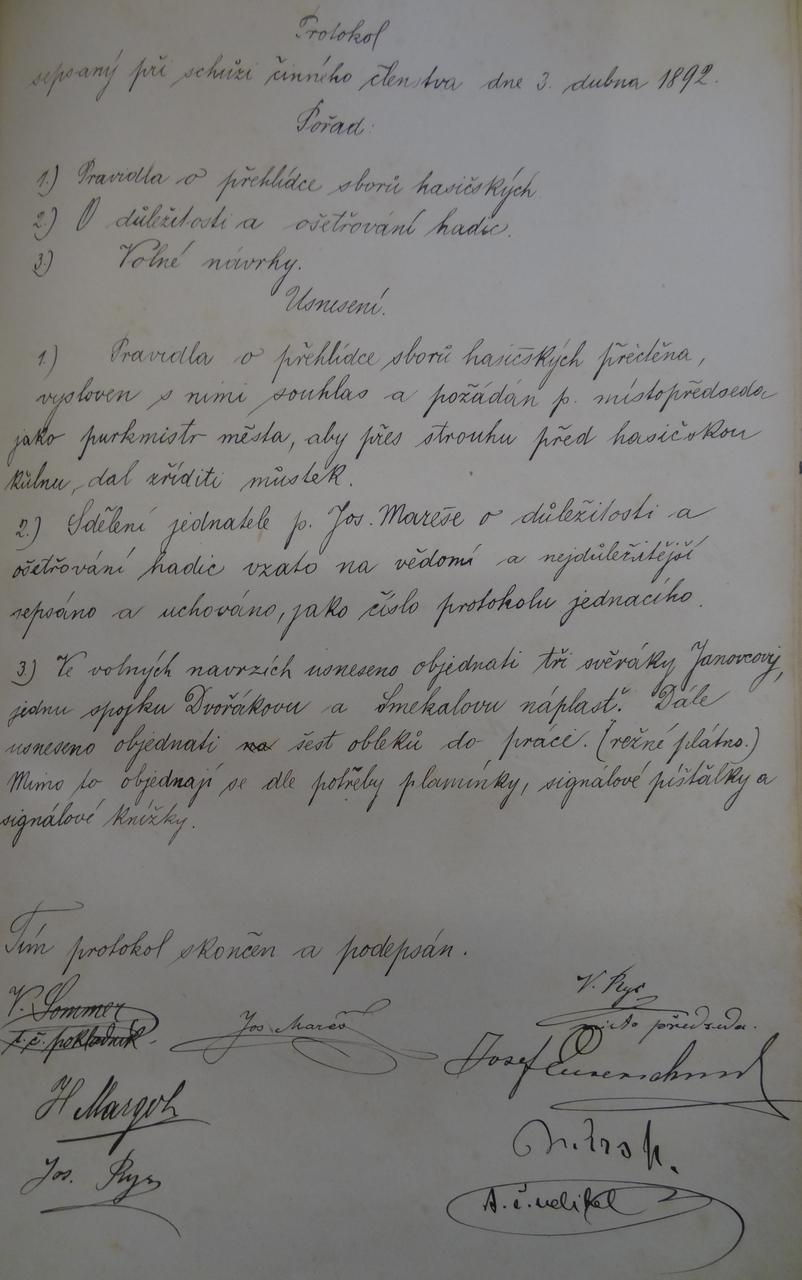 Protokol
sepsaný při schůzi činného členstva dne 3. dubna 1892.
Pořad:
1.) Pravidla o přehlídce sborů hasičských
2.) O důležitosti a ošetřování hadic.
3.) Volné návrhy.
Usnesení.
1.) Pravidla o přehlídce sborů hasičských přečtěna,
vysloven s nimi souhlas a požádán p. místopředseda
jako purkmistr města, aby přes strouhu před hasičskou
kůlnu, dal zříditi můstek.
2.) Sdělení jednatele p. Jos. Mareše o důležitosti a
ošetřování hadic vzato na vědomí a nejdůležitější
sepsáno a uchováno, jako číslo protokolu jednacího.
3.) Ve volných navrzích usneseno objednati tři svěráky Janovcovy,
jednu spojku Dvořákovu a Smekalovu náplasť. Dále
usneseno objednati na šest obleků do práce. (režné plátno.)
Mimo to objednají se dle potřeby plamínky, signálové píšťalky a
signálové knížky.
Tím protokol skončen a podepsán.
V. Sommer
t. č. pokladník
Jos. Mareš
V. Rys
místo předseda.
Josef
H Margol
Jos. Rys
t. č. velitel